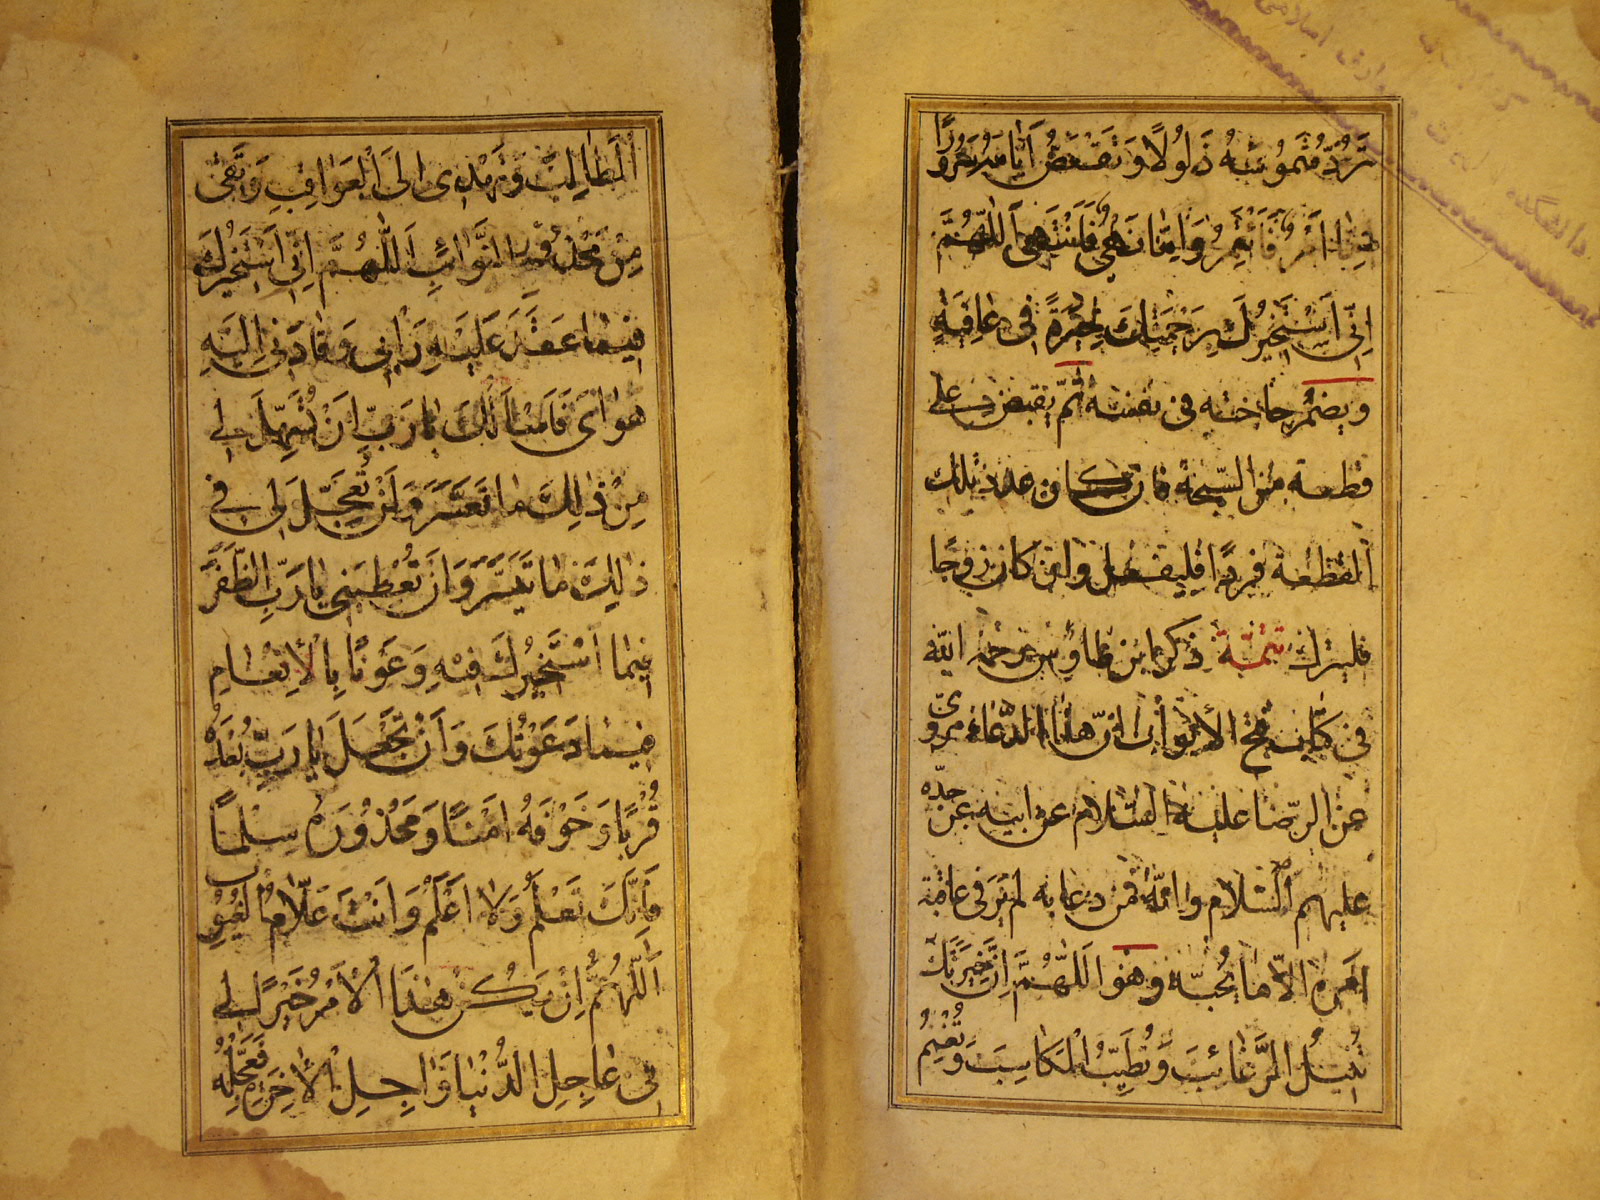 تَرُدُّ شَمُوسَهُ ذَلُولًا وَتَقْعَضُ اَيَّامَهُ سُرُورًا
فَاِمَّا اَمْرٌ فَاَئْتَمِرُ وَاِمَّا نَهْيٌ فَاَنْتَهِي اَللّٰهُمَّ
اِنِّي اَسْتَخِيرُكَ بِرَحْمَتِكَ خِيَرَةً فِي عَافِيَةٍ
ويضمر حاجته في نفسه ثمّ يقبض على
قطعة من السبحة فان كان عدد تلك
القطعة فردًا فليفعل وان كان زوجا
فليترك تتمّة ذكر ابن طاوس رحمه الله
في كتابه فتح الابواب انّ هذا الدعاء مروىّ
عن الرّضا عليه السّلام عن ابيه عن جدّه
عليهم السّلام وانّه من دعا به لم ير في عاقبة
امره الّا ما يحبّه وهو اَللّٰهُمَّ اِنَّ خِيَرَتَكَ
تُنِيلُ الرَّغَائِبَ وَتُطَيِّبُ الْمَكَاسِبَ وَتُغْنِمُ
الْمَطَالِبَ وَتَهْدِي اِلَى الْعَوَاقِبِ وَتَقِي
مِنْ مَحْذُورِ النَّوَائِبِ اَللّٰهُمَّ اِنِّي اَسْتَخِيرُكَ
فِيمَا عَقَدَ عَلَيْهِ رَأْيِي وَقَادَنِي اِلَيْهِ
هَوَايَ فَاَسْاَلُكَ يَا رَبِّ اَنْ تُسَهِّلَ لِي
مِنْ ذٰلِكَ مَا تَعَسَّرَ وَاَنْ تُعَجِّلَ لِي فِي
ذٰلِكَ مَا تَيَسَّرَ وَاَنْ تُعْطِيَنِي يَا رَبِّ الظَّفَرَ
فِيمَا اَسْتَخِيرُكَ فِيهِ وَعَوْنًا بِالْاِنْعَامِ
فِيمَا دَعَوْتُكَ وَاَنْ تَجْعَلَ يَا رَبِّ بُعْدَهُ
قُرْبًا وَخَوْفَهُ اَمْنًا وَمَحْذُورَهُ سِلْمًا
فَاِنَّكَ تَعْلَمُ وَلَا اَعْلَمُ وَاَنْتَ عَلَّامُ الْغُيُوبِ
اَللّٰهُمَّ اِنْ يَكُنْ هٰذَا الْاَمْرُ خَيْرًا لِي
فِي عَاجِلِ الدُّنْيَا وَاٰجِلِ الْاٰخِرَةِ فَعَجِّلْهُ